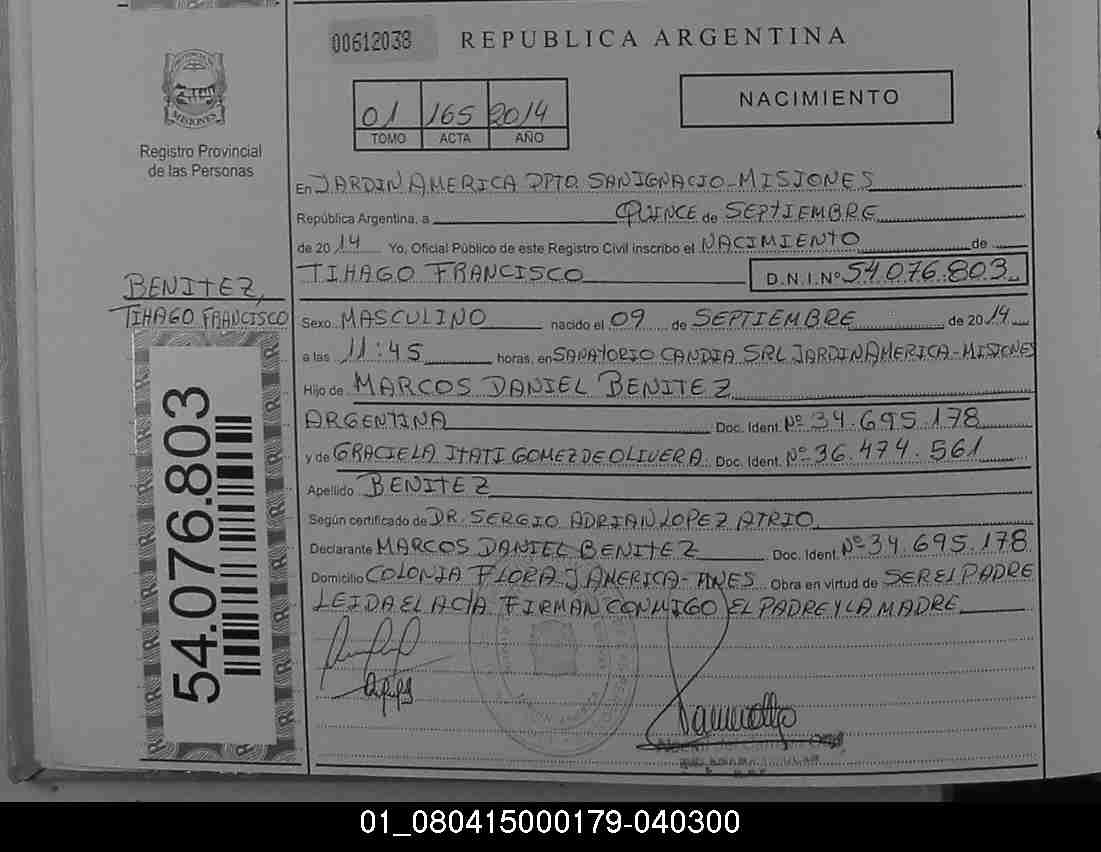 00612038 REPUBLICA ARGENTINA
01 165 2014
TOMO ACTA AÑO
NACIMIENTO
MISIONES
Registro Provincial
de las Personas
En JARDIN AMERICA DPTO. SAN IGNACIO - MISIONES
República Argentina, a QUINCE de SEPTIEMBRE
de 2014 Yo, Oficial Público de este Registro Civil inscribo el NACIMIENTO de
TIHAGO FRANCISCO D.N.I.Nº 54.076.803
BENITEZ,
TIHAGO FRANCISCO
Sexo MASCULINO nacido el 09 de SEPTIEMBRE de 2014
a las 11:45 horas, en SANATORIO CANDIA SRL JARDIN AMERICA - MISIONES
Hijo de MARCOS DANIEL BENITEZ
ARGENTINA Doc. Ident. Nº 34.695.178
y de GRACIELA ITATI GOMEZ DE OLIVERA Doc. Ident. Nº 36.474.561
Apellido BENITEZ
Según certificado de DR. SERGIO ADRIAN LOPEZ ATRIO
Declarante MARCOS DANIEL BENITEZ Doc. Ident. Nº 34.695.178
Domicilio COLONIA FLORA J. AMERICA - MNES Obra en virtud de SER EL PADRE
LEIDA EL ACTA FIRMAN CONMIGO EL PADRE Y LA MADRE
54.076.803
01_080415000179-040300